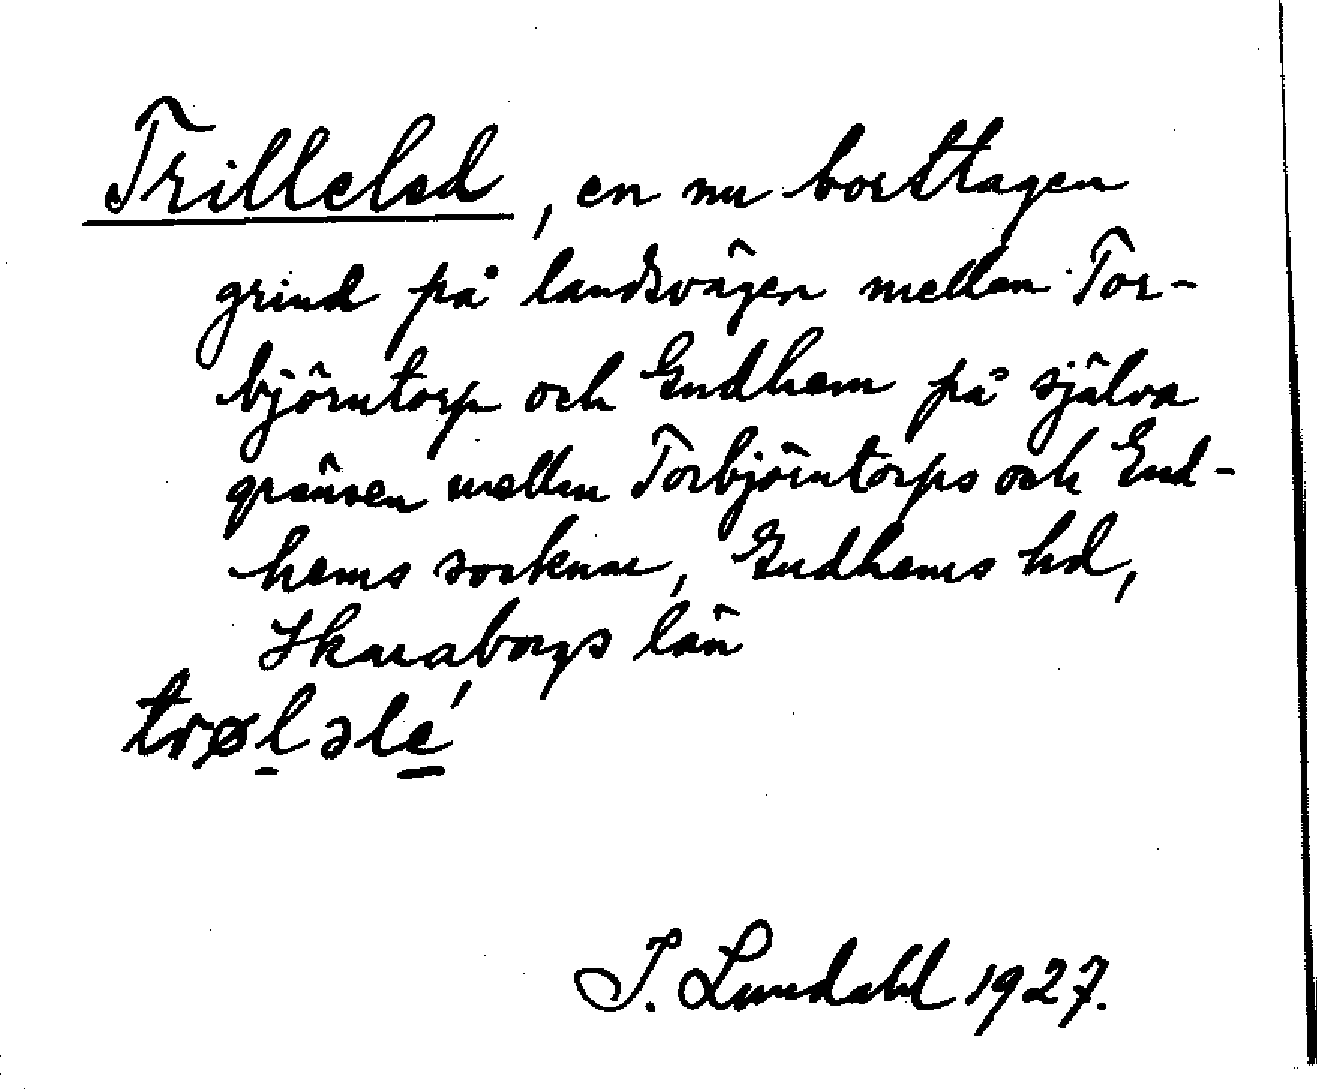 Trilleled, en nu borttagen
grind på landsvägen mellan Tor-
björntorp och Gudhem på själva
gränsen mellan Torbjörntorps och Gud-
hems socknar, Gudhems hd,
Skaraborgs län
trøl̠əle̠´
I. Lundahl 1927.